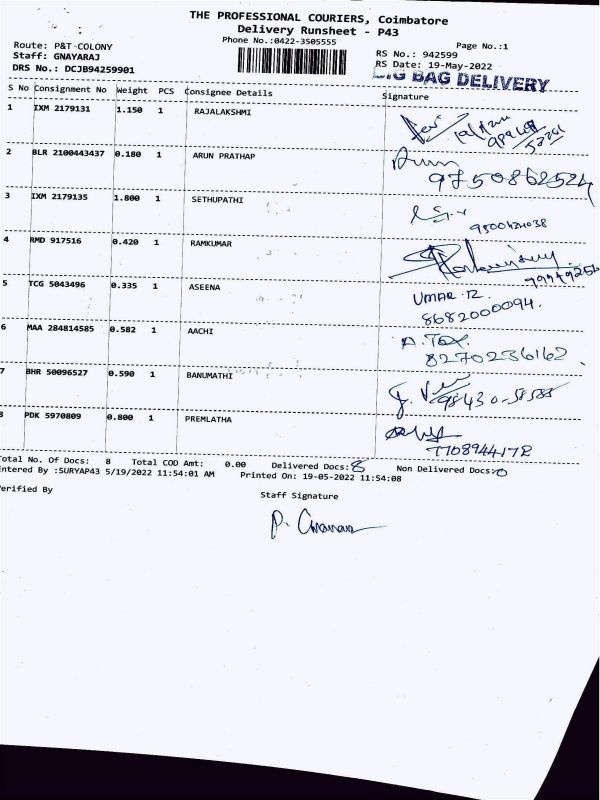 THE PROFESSIONAL COURIERS, Coimbatore
Delivery Runsheet - P43
Phone No.:0422-3505555
Page No.:1
Route: P&T-COLONY
Staff: GNAYARAJ
DRS No.: DCJB94259901
RS No.: 942599
RS Date: 19-May-2022
BIG BAG DELIVERY
S No Consignment No Weight PCS Consignee Details Signature
1 IXM 2179131 1.150 1 RAJALAKSHMI
2 BLR 2100443437 0.180 1 ARUN PRATHAP Arun
9750862524
3 IXM 2179135 1.800 1 SETHUPATHI
4 RMD 917516 0.420 1 RAMKUMAR
5 TCG 5043496 0.335 1 ASEENA UMAR R.
8682000094.
6 MAA 284814585 0.582 1 AACHI
8270236162.
7 BHR 50096527 0.590 1 BANUMATHI
8 PDK 5970809 0.800 1 PREMLATHA
7708944172
Total No. Of Docs: 8 Total COD Amt: 0.00 Delivered Docs: 8 Non Delivered Docs: 0
Entered By :SURYAP43 5/19/2022 11:54:01 AM Printed On: 19-05-2022 11:54:08
Verified By Staff Signature